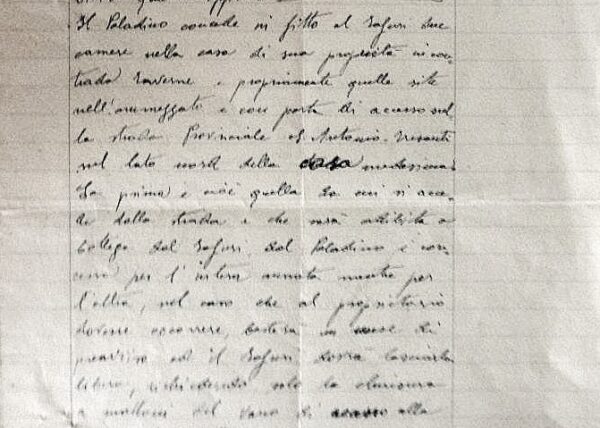 Il Paladino concede in fitto al Safuri due
camere nella casa di sua proprietà in con-
trada Taverne e propriamente quelle site
nell'ammezzato e con porta di accesso sul
la strada Provinciale S. Antonio-
nel lato nord della casa medesima.
La prima e cioè quella da cui si acce-
de dalla strada e che sarà adibita a
bottega dal Safuri dal Paladino è con-
cessa per l'intera annata mentre per
l'altra, nel caso che al proprietario
dovesse occorrere, basterà un mese di
preavviso ed il Safuri dovrà lasciarla
libera, richiedendo solo la chiusura
a mattoni del vano di accesso alla